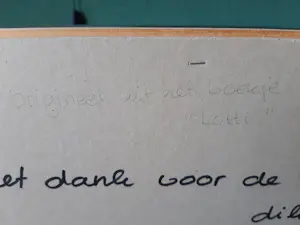 origineel uit het boekje
"Letti"
et dank voor de
dik